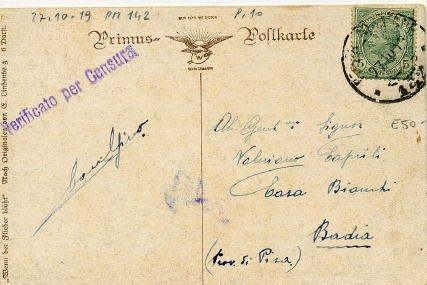 27.10.19 PM 142
P.10
Primus-Postkarte
Verificato per Censura
Nach Originalen von E.
"Wenn der Flieder blüht"
E50-
Al Gent.mo Signor
Valeriano Caprili
Casa Bianchi
Badia
(Prov. di Pisa)